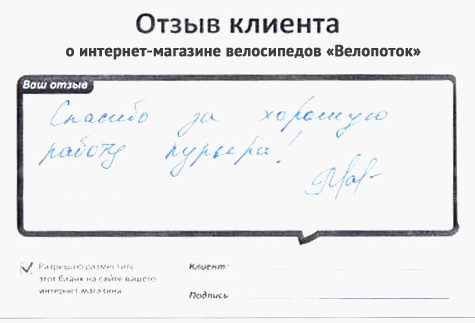 Отзыв клиента
о интернет-магазине велосипедов «Велопоток»
Ваш отзыв
Спасибо за хорошую
работу курьера!
Разрешаю разместить
этот бланк на сайте вашего
интернет-магазина
Клиент:
Подпись